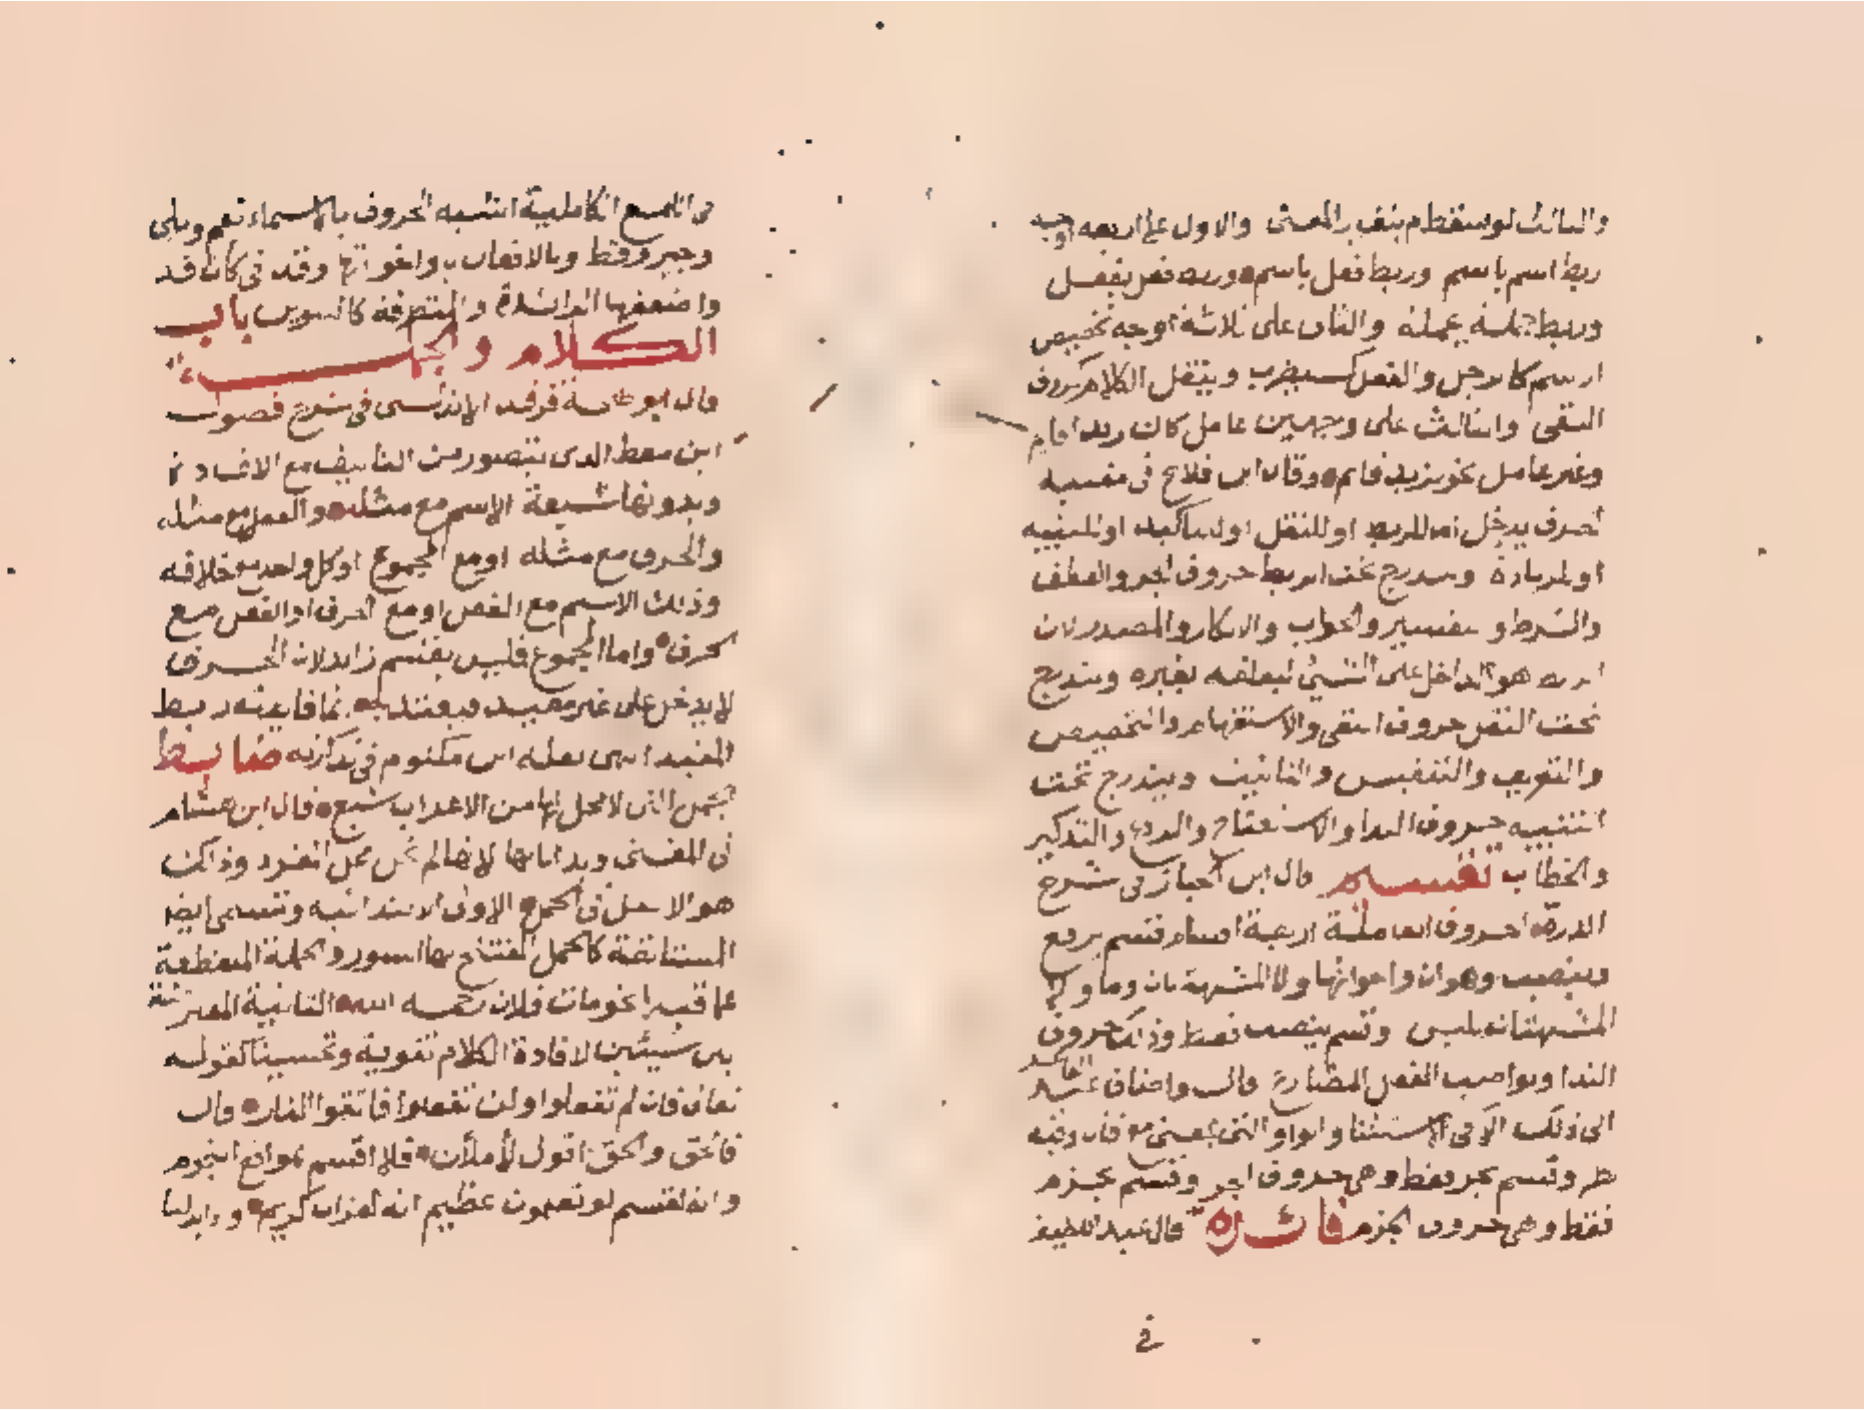 والثالث لو سقط لم يتغير المعنى والاول على اربعه اوجه
ربط اسم باسم وربط فعل باسم وربط فعل بفعل
وربط جملة بجملة والثاني على ثلاثة اوجه تخصيص
الاسم كالرجل والفعل كسيضرب وينقل الكلام كحروف
النفي والثالث على وجهين عامل كان زيدا قايم
وغير عامل نحو زيد قايم وقال ابن فلاح في مغنيه
الحرف يدخل اما للربط او للنقل او للتاكيد او للتنبيه
او لزيادة ويندرج تحت الربط حروف الجر والعطف
والشرط والتفسير والجواب والانكار والمصدر لان
الربط هو الداخل على الشيئ لتعلقه بغيره ويندرج
تحت النقل حروف النفي والاستفهام والتخصيص
والتعريف والتنفيس والتانيث ويندرج تحت
التنبيه حروف الندا والاستفتاح والردع والتذكير
والخطاب تقسيم قال ابن الخباز في شرح
الدرة الحروف العاملة اربعة اقسام قسم يرفع
وينصب وهو ان واخواتها ولا المشبهة بان وما ولا
المشبهتان بليس وقسم ينصب فقط وذلك حروف
الندا ونواصب الفعل المضارع قال واضاف عبد القاهر
الى ذلك الا في الاستثنا والواو التي بمعنى مع قال وفيه
نظر وقسم يجر فقط وهي حروف الجر وقسم يجزم
فقط وهي حروف الجزم فائدة قال عبد اللطيف
في
في اللمع الكاملية اشبه الحروف بالاسماء نعم وبلى
وجير وقط وبالافعال يا واخواتها وقد في كان قد
واضعفها الزائدة والمتطرفة كالتنوين باب
الكلام والجملة
قال ابو فرقد الاندلسي في شرح فصول
ابن معط الذي يتصور من التاليف مع الافادة
وبدونها سبعة الاسم مع مثله والفعل مع مثله
والحرف مع مثله او مع المجموع او كل واحد مع خلافه
وذلك الاسم مع الفعل او مع الحرف او الفعل مع
الحرف واما المجموع فليس بقسم زايد لان الحرف
لا يدخل على غير مفيد فيعتد به انما فايدته ربط
المفيد انتهى نقله ابن مكتوم في تذكرته ضابط
الجمل التي لا محل لها من الاعراب سبع قال ابن هشام
في المغني وبدانا بها لانها لم تحل محل المفرد وذلك
هو الاصل في الجمل الاولى الابتدائية وتسمى ايضا
المستانفة كالجمل المفتتح بها السور والجملة المنقطعة
عما قبلها نحو مات فلان رحمه الله الثانية المعترضة
بين شيئين لافادة الكلام تقوية وتحسينا كقوله
تعالى فان لم تفعلوا ولن تفعلوا فاتقوا النار قال
فالحق والحق اقول لأملأن فلا اقسم بمواقع النجوم
وانه لقسم لو تعلمون عظيم انه لقرآن كريم